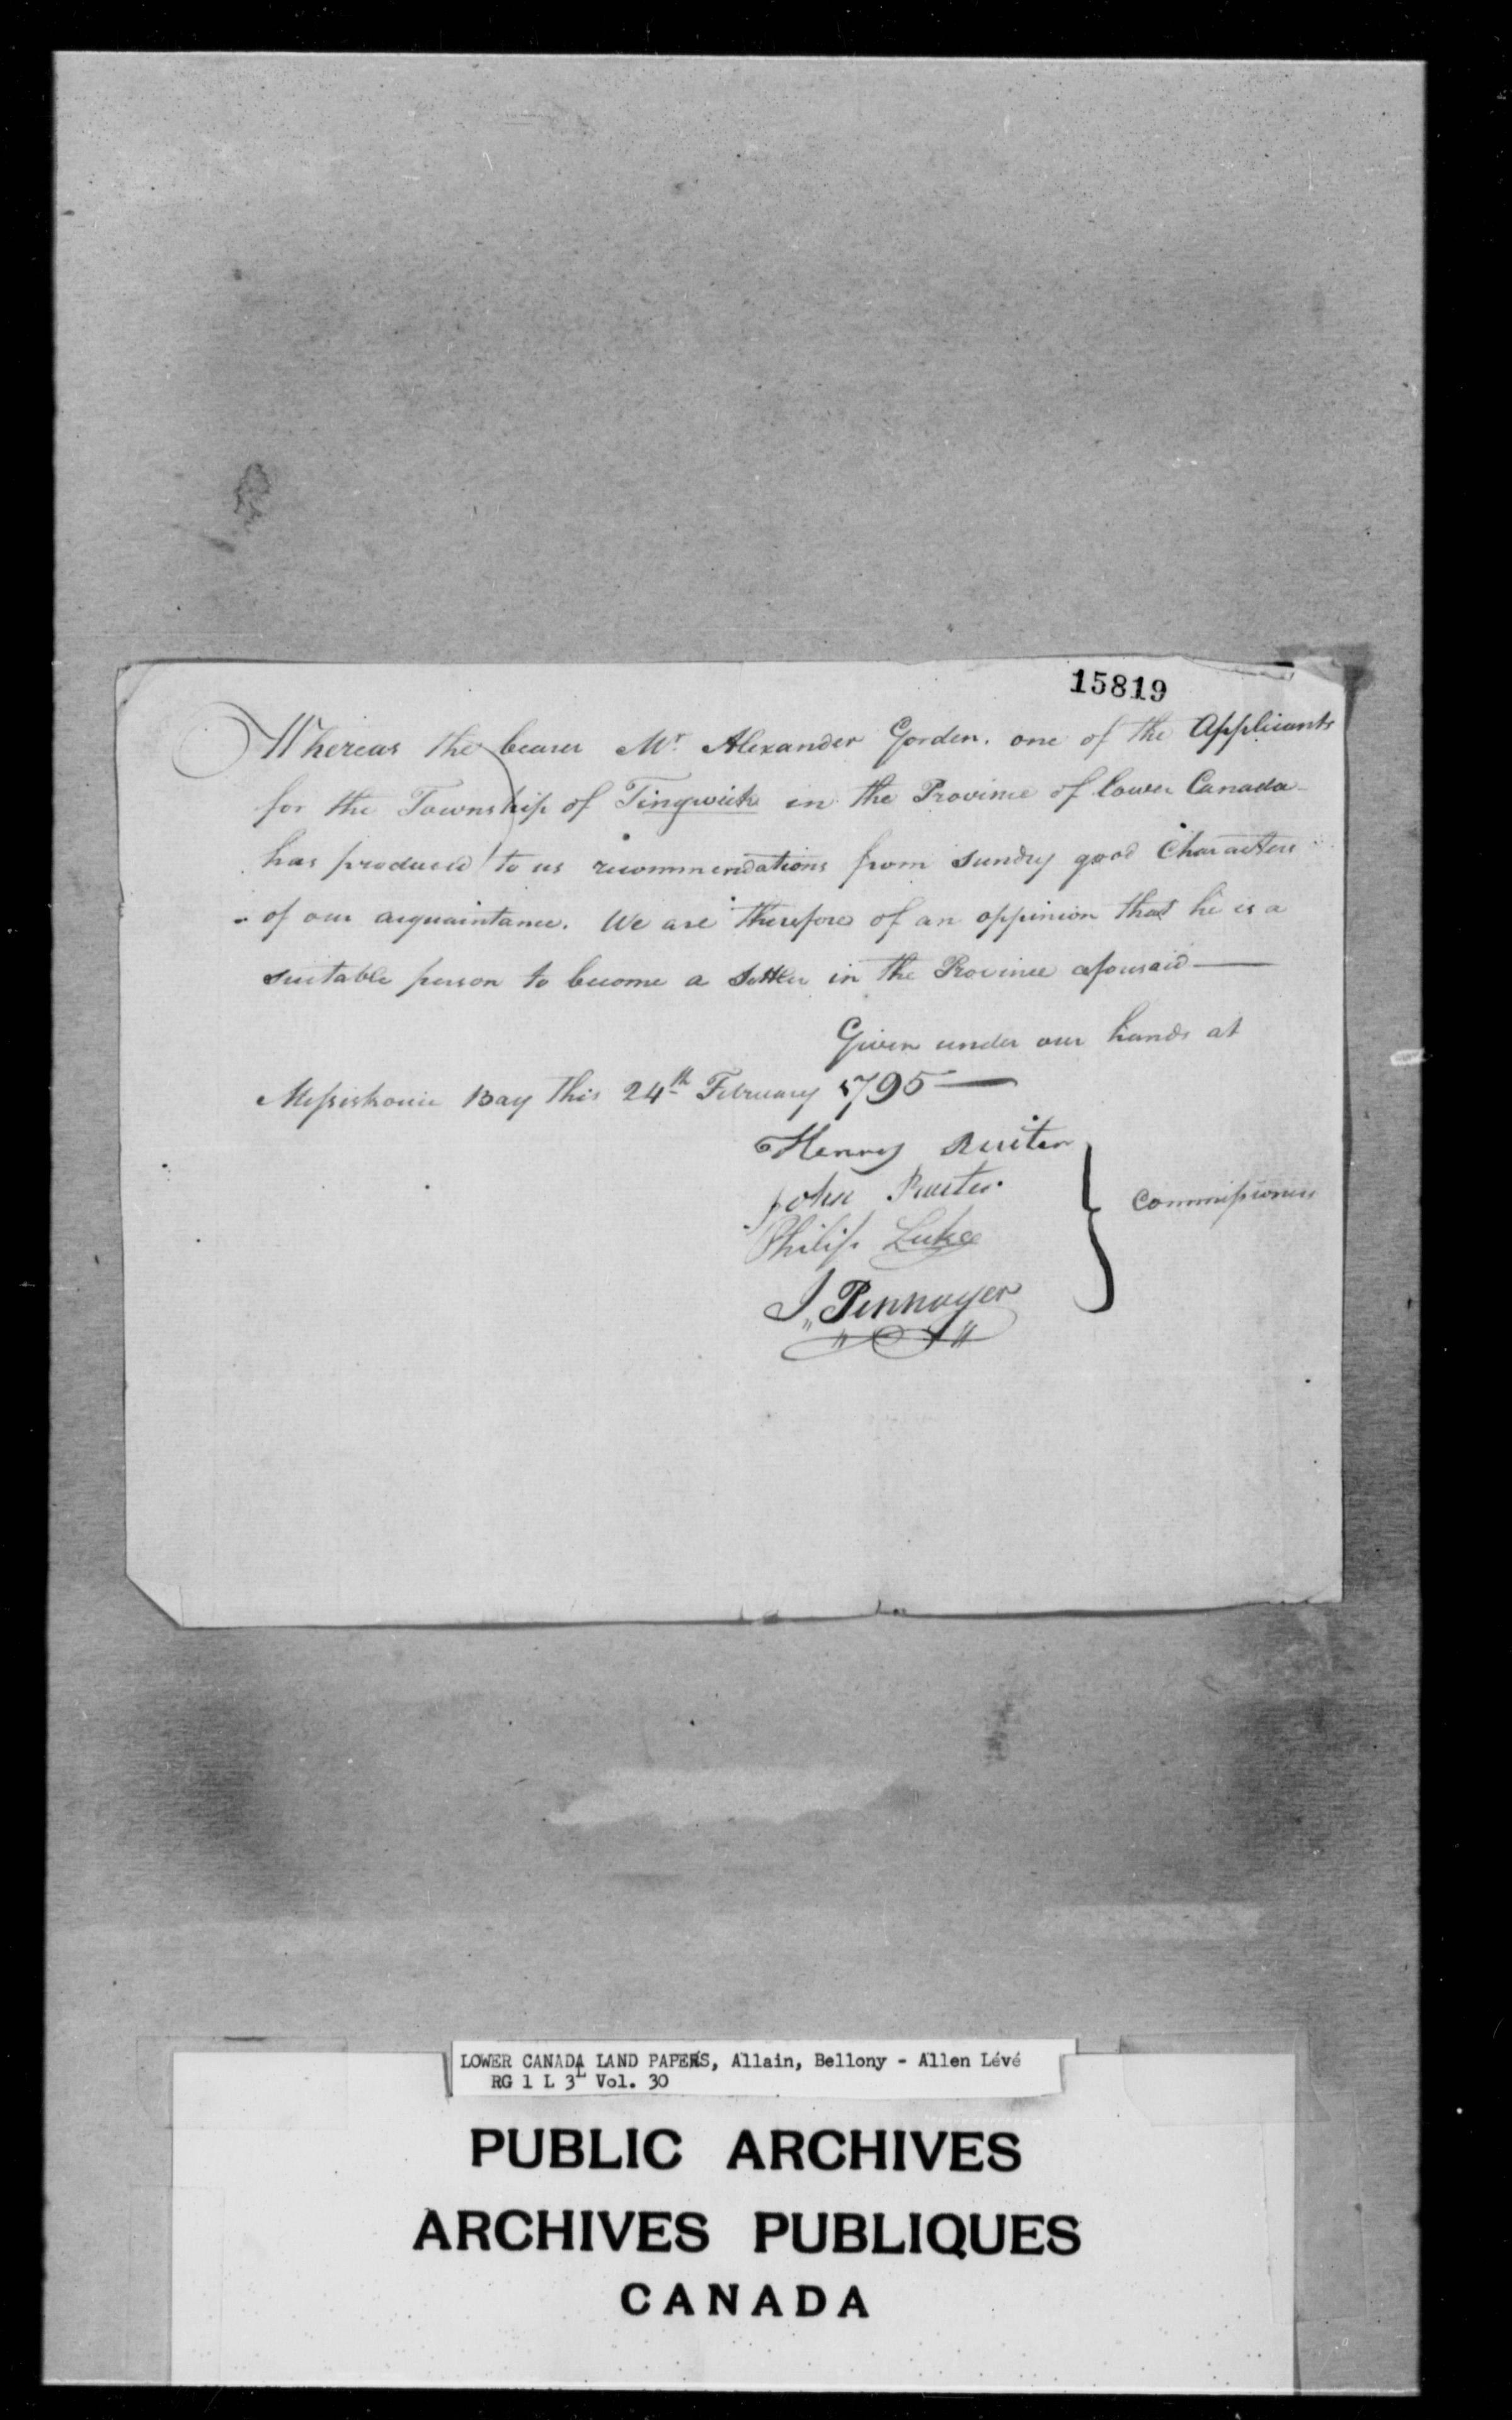 15819
Whereas the bearer Mr. Alexander Gorden. one of the Applicants
for the Township of Tingwick in the Province of lower Canada
has produced to us recommendations from sundry good Characters
of our acquaintance. We are therefore of an oppinion that he is a
suitable person to become a Settler in the Province aforesaid —
Given under our hands at
Missiskouie Bay this 24th February 1795 —
Henry Ruiter
John Ruiter
Philip Luke
J. Pennoyer
Commissioners
LOWER CANADA LAND PAPERS, Allain, Bellony - Allen Lévé
RG 1 L 3L Vol. 30
PUBLIC ARCHIVES
ARCHIVES PUBLIQUES
CANADA